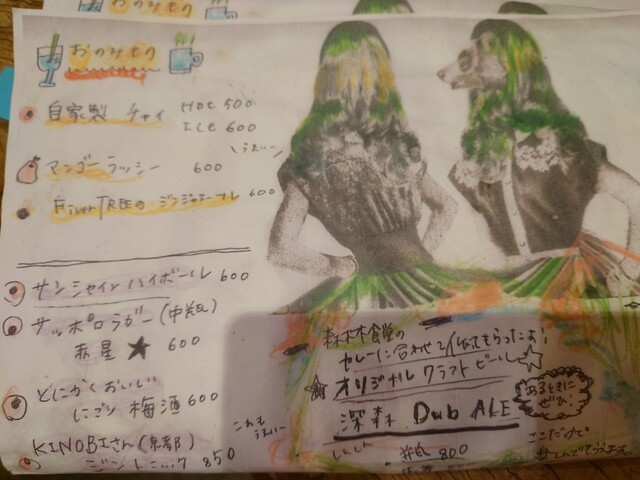 おのみもの
自家製 チャイ HOt 500
ICE 600
マンゴーラッシー 600
FEverTREEの ジンジャエール 600
サンシャインハイボール 600
サッポロラガー(中瓶)
赤星★ 600
とにかくおいしい
にごり 梅酒 600
KINOBIさん(京都)
ジントニック 850
これも
うまいー
森林食堂の
カレーに合わせて作ってもらったよ!
オリジナルクラフトビール☆
深森 Dub ALE
しんしん
800
あるときに
ぜひ!
ここだけで